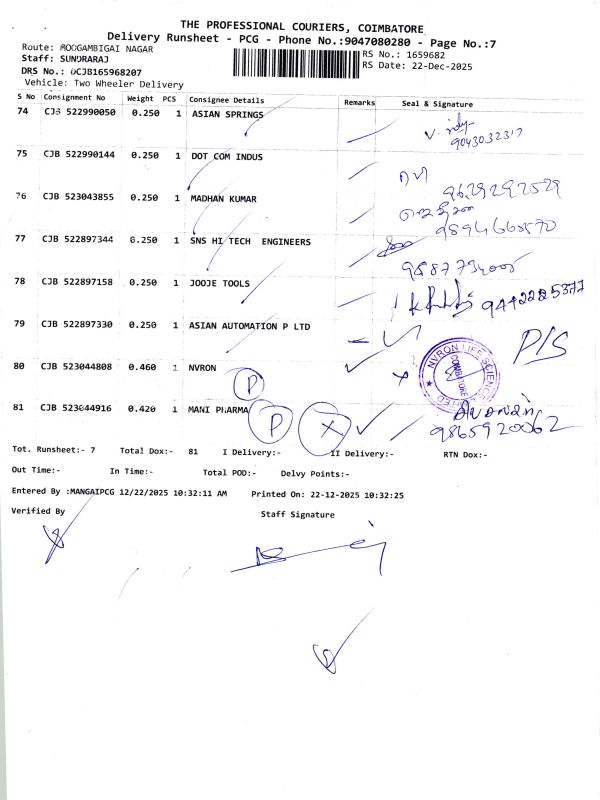 THE PROFESSIONAL COURIERS, COIMBATORE
Delivery Runsheet - PCG - Phone No.:9047080280 - Page No.:7
Route: MOOGAMBIGAI NAGAR RS No.: 1659682
Staff: SUNDRARAJ RS Date: 22-Dec-2025
DRS No.: DCJB165968207
Vehicle: Two Wheeler Delivery
S No Consignment No Weight PCS Consignee Details Remarks Seal & Signature
74 CJB 522990050 0.250 1 ASIAN SPRINGS
75 CJB 522990144 0.250 1 DOT COM INDUS
9629292529
76 CJB 523043855 0.250 1 MADHAN KUMAR
77 CJB 522897344 0.250 1 SNS HI TECH ENGINEERS
78 CJB 522897158 0.250 1 JOOJE TOOLS
79 CJB 522897330 0.250 1 ASIAN AUTOMATION P LTD
P/S
80 CJB 523044808 0.460 1 NVRON
P
NVRON LIFE SCIENCE
81 CJB 523044916 0.420 1 MANI PHARMA
P X
9865920062
Tot. Runsheet:- 7 Total Dox:- 81 I Delivery:- II Delivery:- RTN Dox:-
Out Time:- In Time:- Total POD:- Delvy Points:-
Entered By :MANGAIPCG 12/22/2025 10:32:11 AM Printed On: 22-12-2025 10:32:25
Verified By Staff Signature